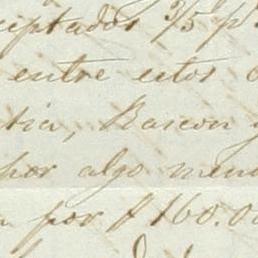 ceptados 3/5 p
entre estos
tia, Bascon y
por algo men
por $ 160.00